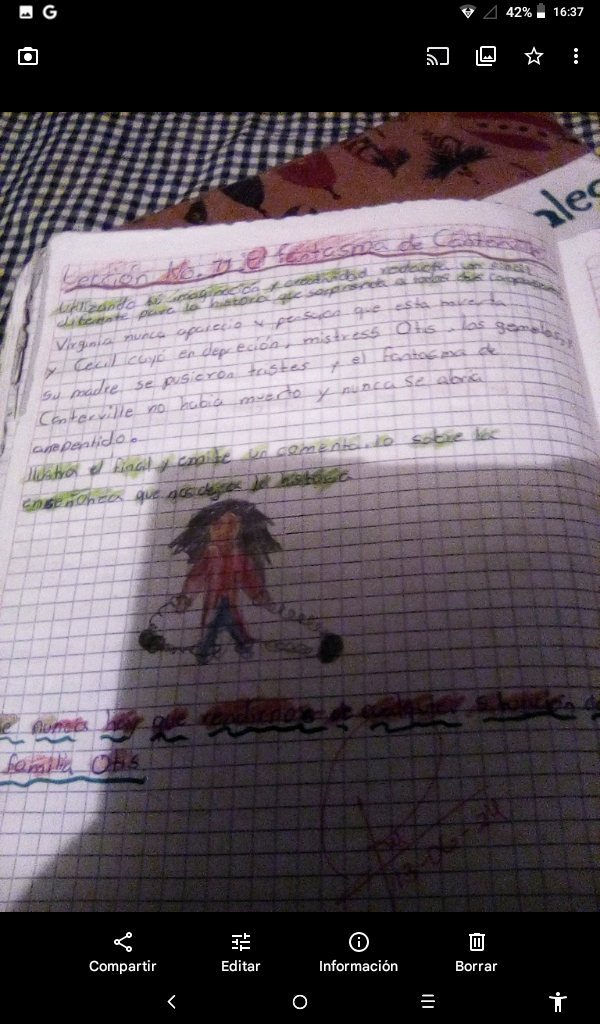 42% 16:37
alec
Lección No. 11: El fantasma de Centerville
utilizando tu imaginación y creatividad redacta un final
diferente para la historia que sorprenda a todos tus compañeros
Virginia nunca aparecio y pensaron que esta muerta
y Cecil cuyó en depreción, mistress Otis, los gemelos, y
su madre se pusieron tristes y el fantasma de
Centerville no habia muerto y nunca se abria
arrepentido.
Ilustra el final y emite un comenta. io sobre la
enseñanza que nos dejas la historia
nunca hay que de cualquier situación
familia Otis
13-06-24
Compartir Editar Información Borrar